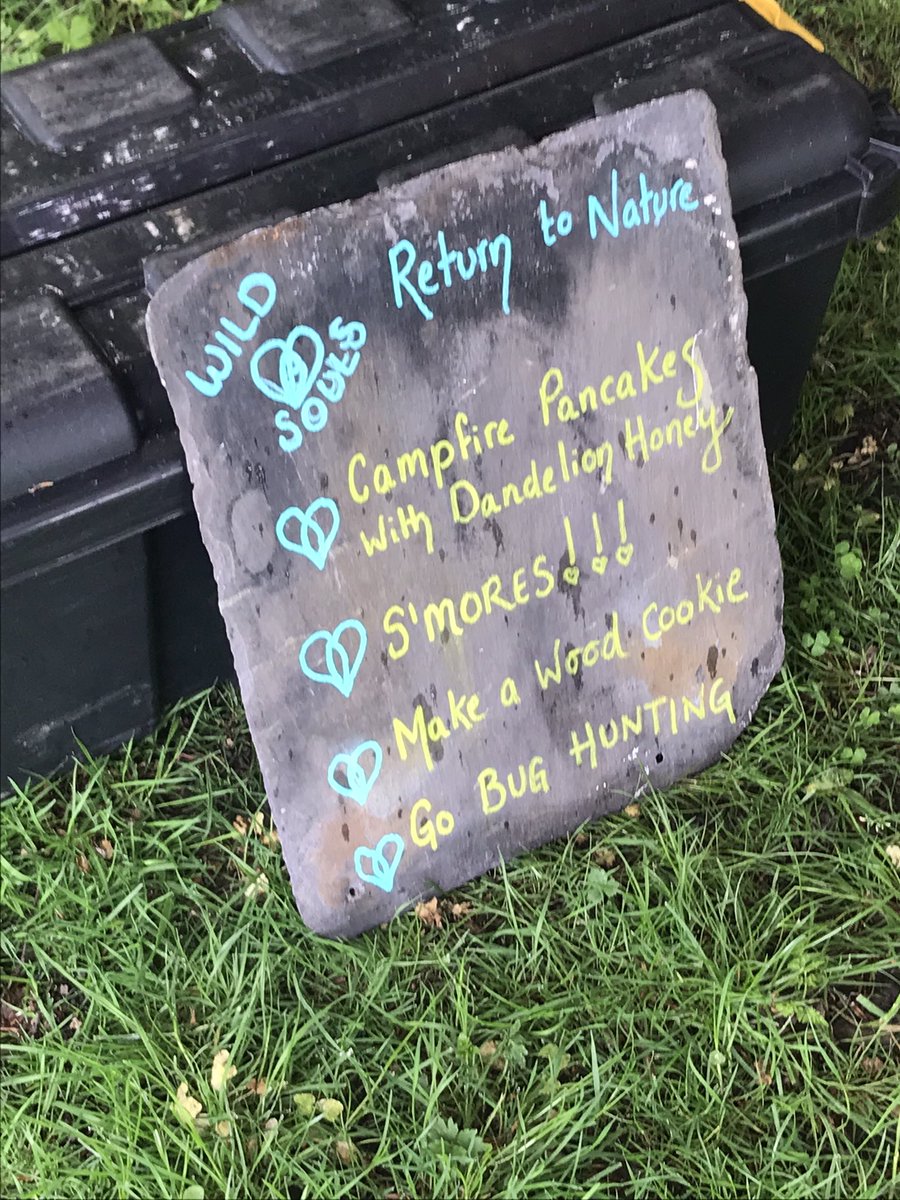 WILD
SOULS
Return to Nature
Campfire Pancakes
with Dandelion Honey
S'MORES!!!
Make a Wood Cookie
Go BUG HUNTING